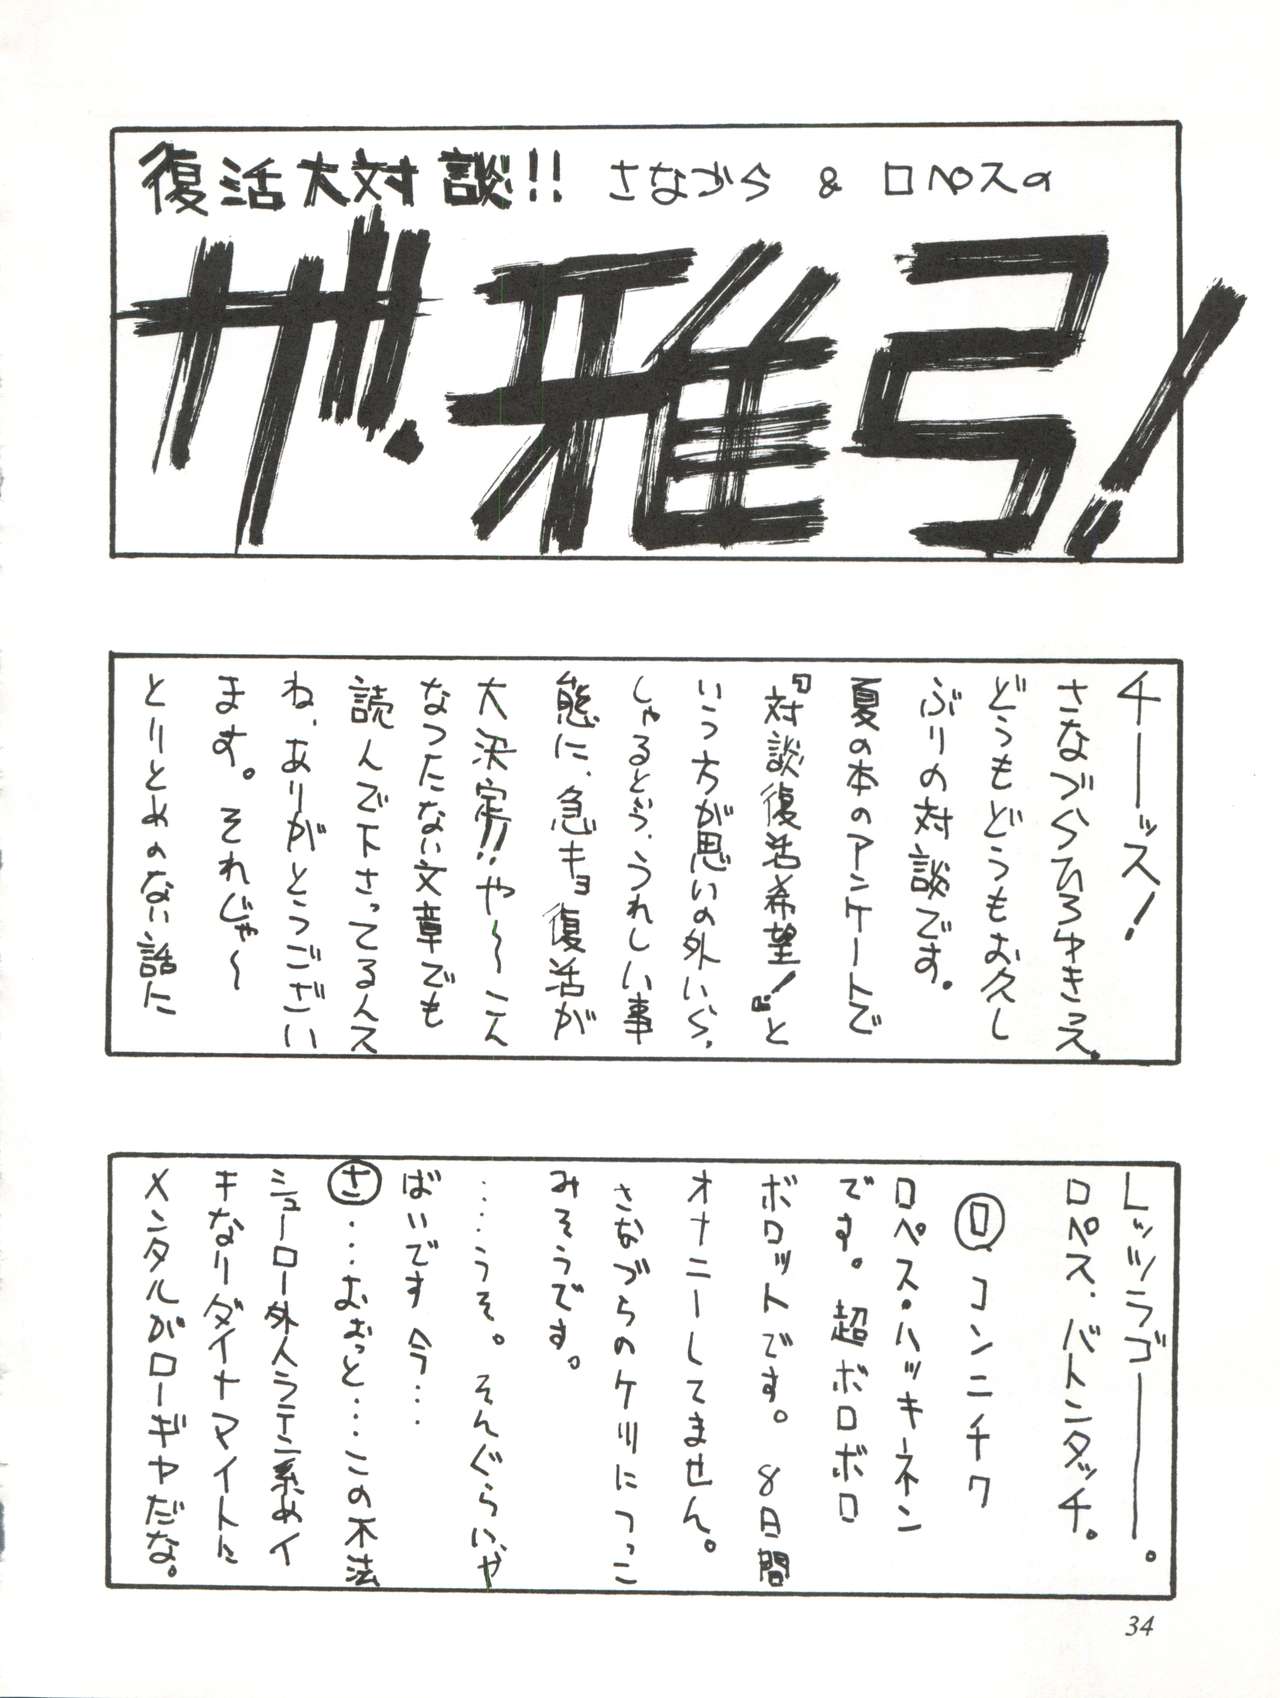 復活大対談!! さなづら & ロペスの
ザ・雅弓!
チーーッス!
さなづらひろゆきっス。
どうもどうもお久し
ぶりの対談です。
夏の本のアンケートで
『対談復活希望!』と
いう方が思いの外いら、
しゃるとゆう、うれしい事
態に、急キョ復活が
大決定!!や〜こん
なつたない文章でも
読んで下さってるんス
ね、ありがとうござい
ます。それじゃ〜
とりとめのない話に
レッツラゴーーー。
ロペス、バトンタッチ。
ロ、コンニチワ
ロペス・ハッキネン
です。超ボロボロ
ボロットです。8日間
オナニーしてません。
さなづらのケツにつっこ
みそうです。
……うそ。そんぐらいや
ばいです今…
さ……おおっと…この不法
シューロー外人ラテン系めイ
キなりダイナマイトに
メンタルがローギヤだな。
34